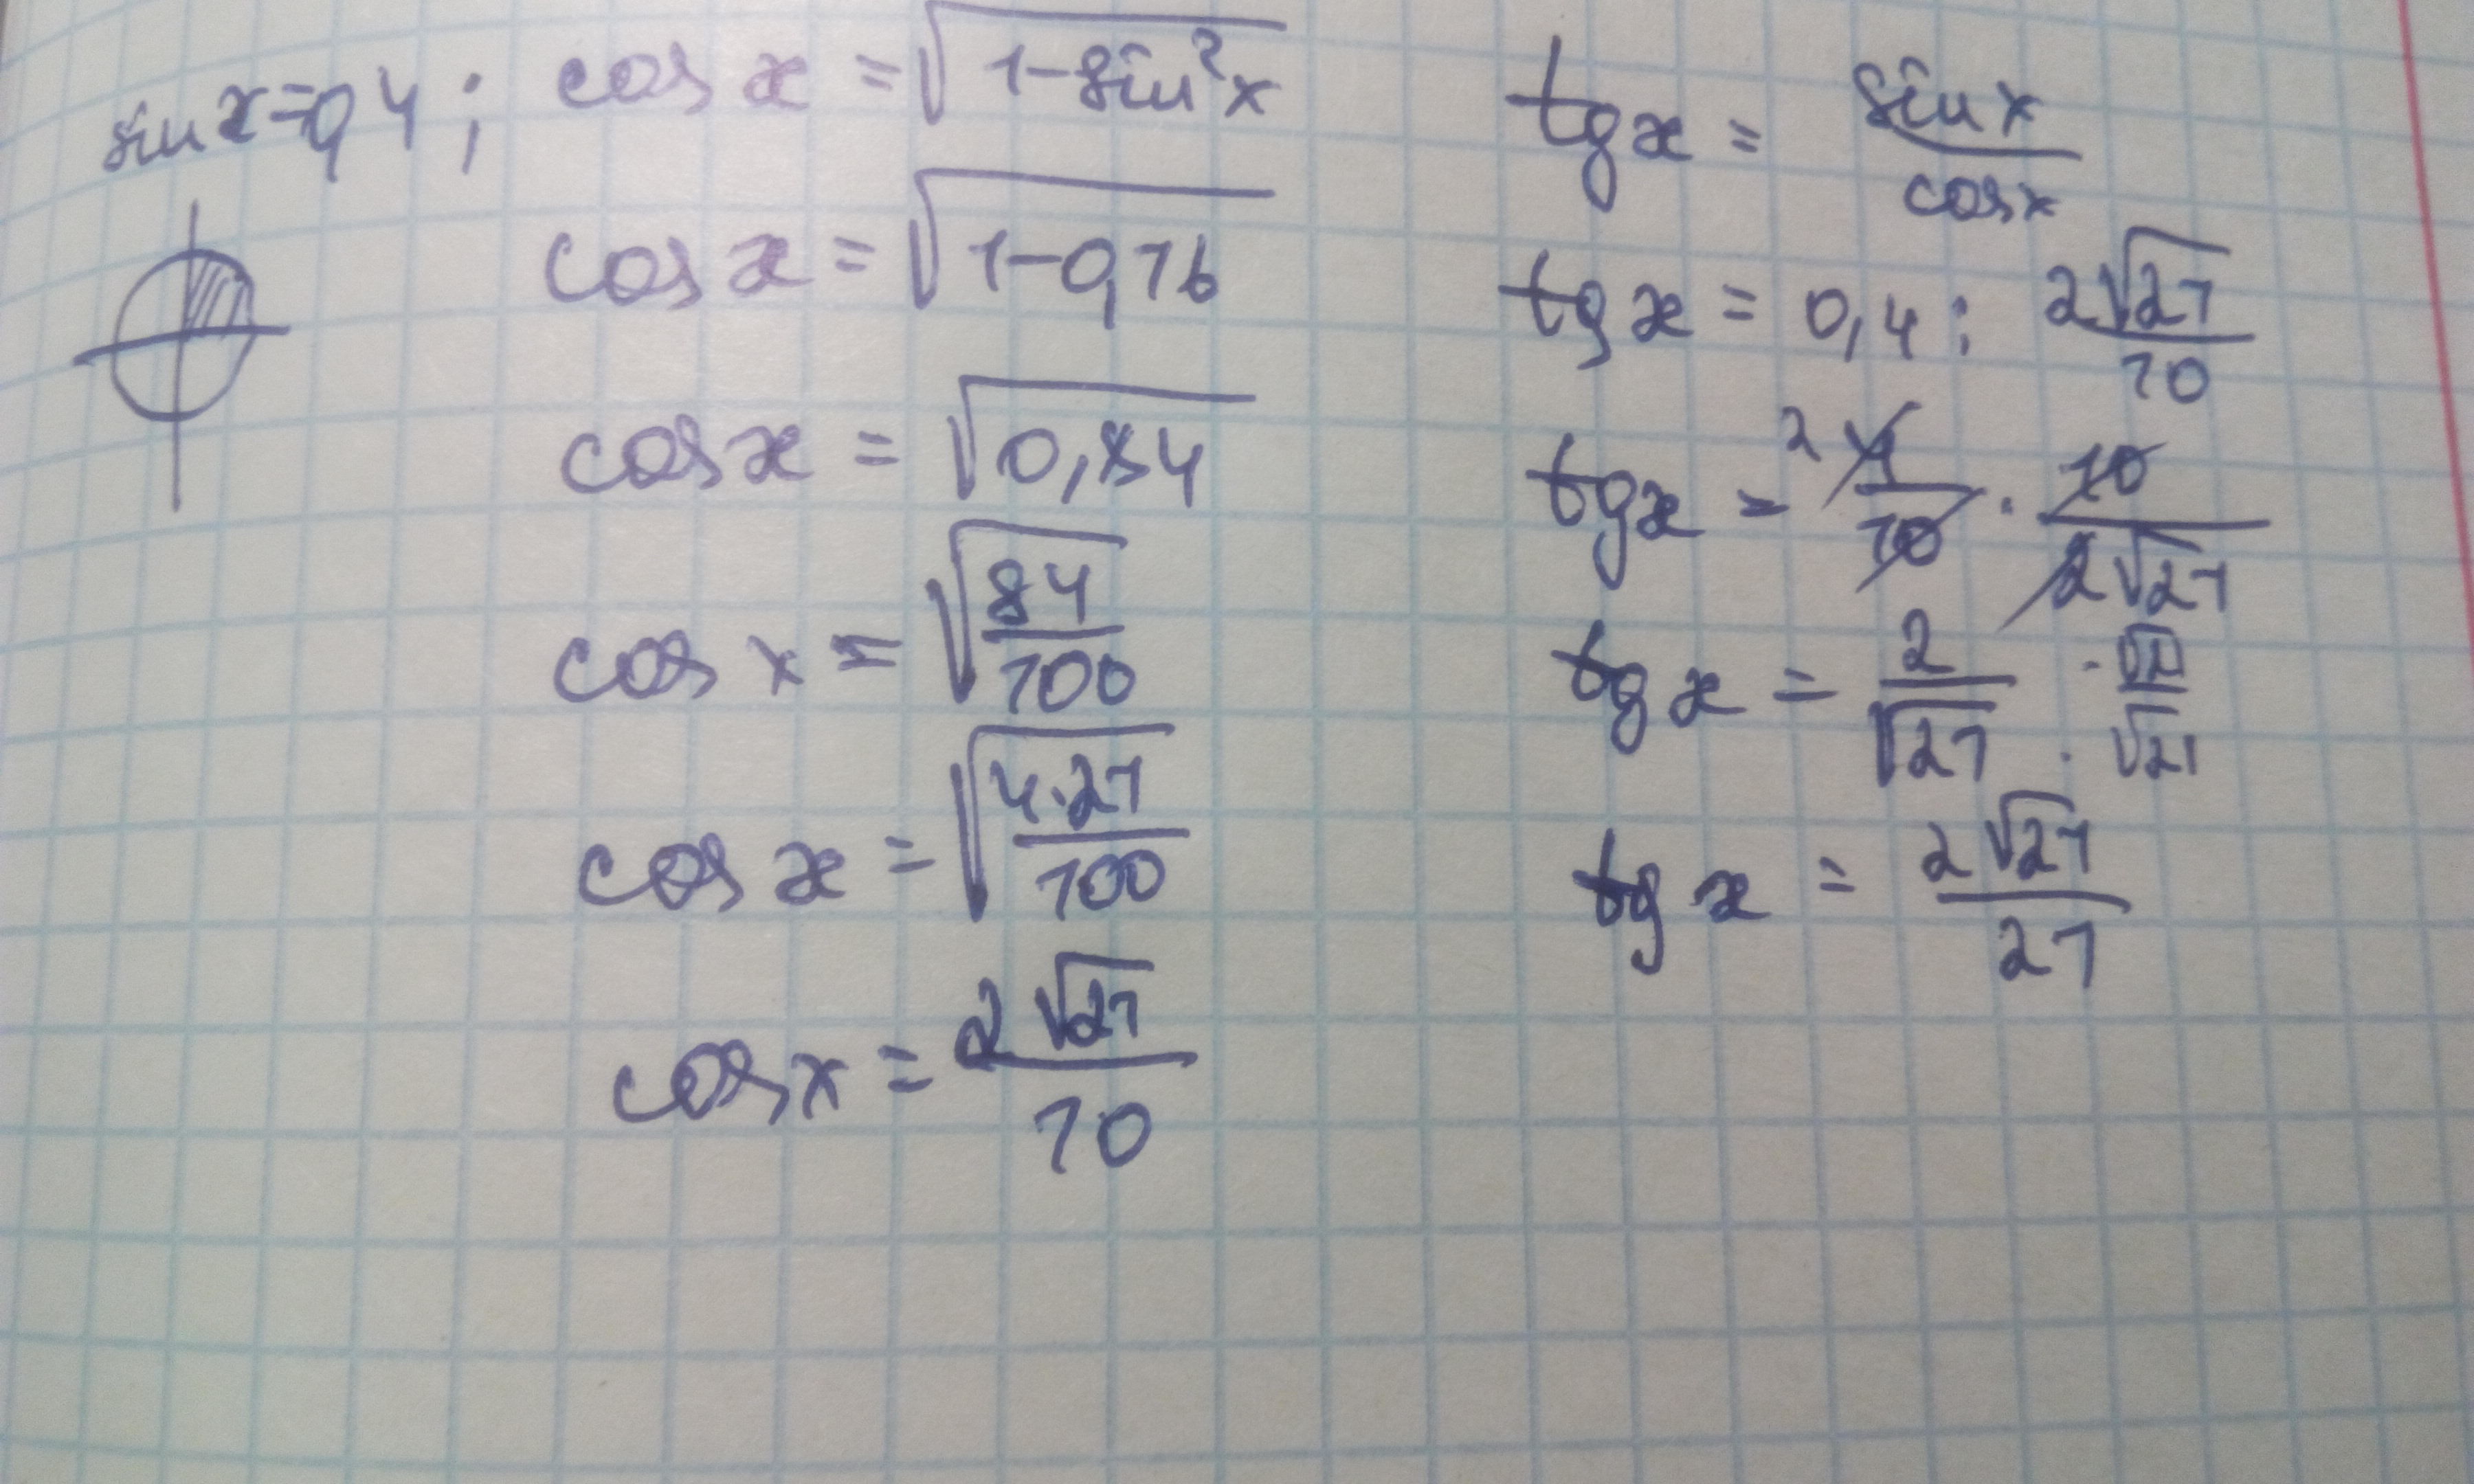 sin x = 0,4 ; cos x = √(1 - sin²x)
cos x = √(1 - 0,16)
cos x = √(0,84)
cos x = √(84/100)
cos x = √((4·21)/100)
cos x = (2√21)/10
tg x = (sin x)/(cos x)
tg x = 0,4 : (2√21)/10
tg x = 2 4/10 · 10/(2√21)
tg x = 2/√21 · √21/· √21
tg x = (2√21)/21